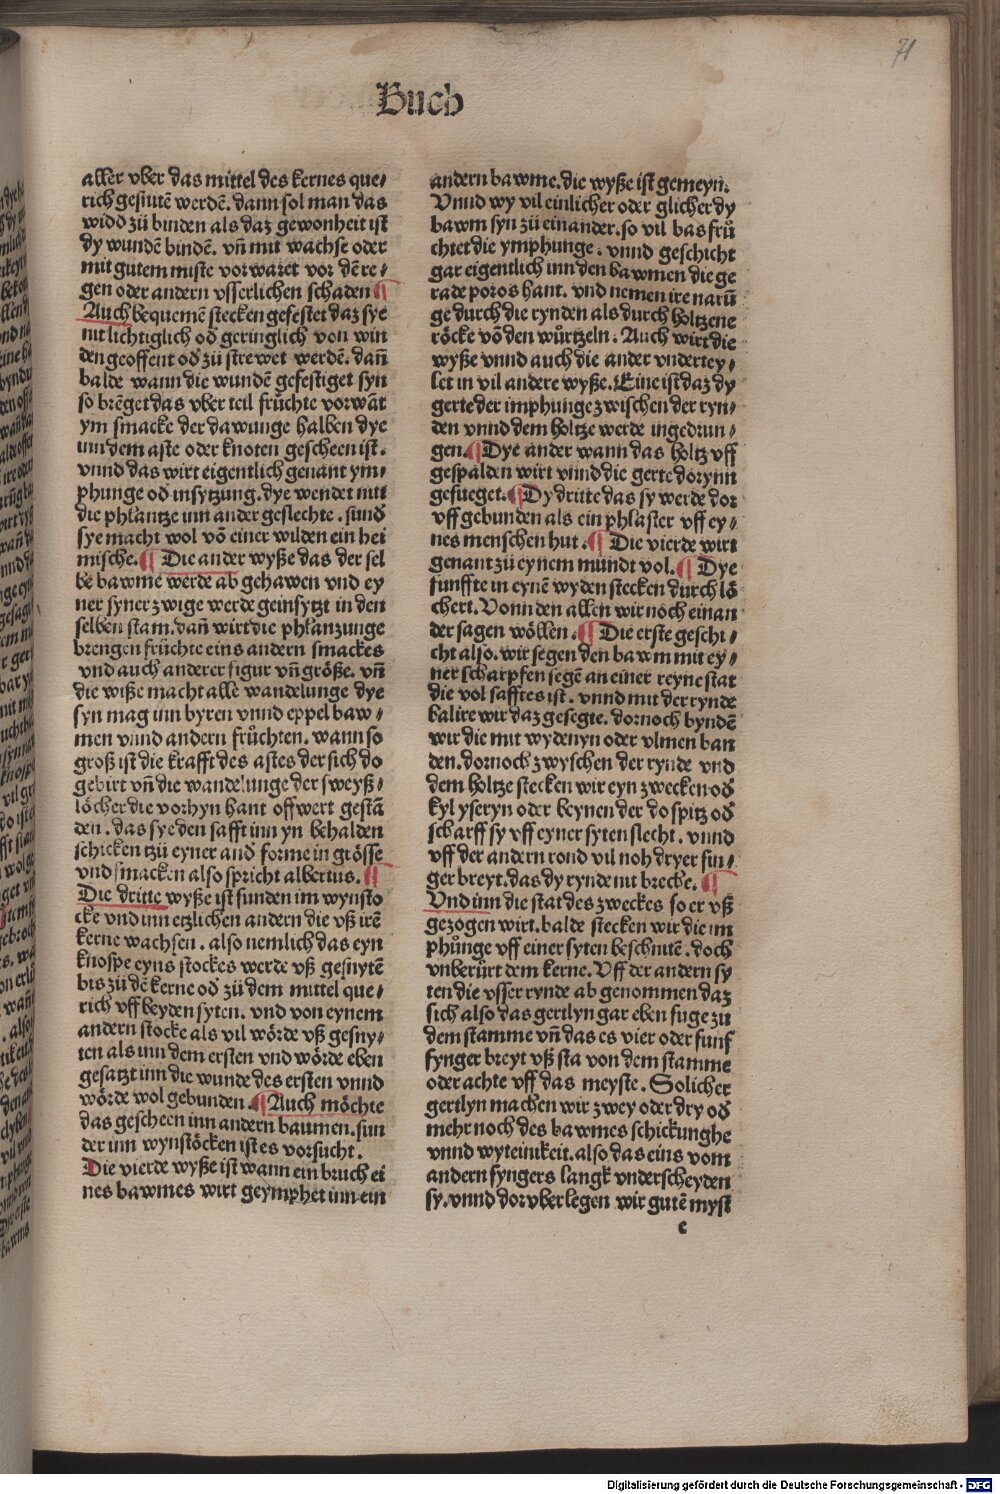 71
Buch
aller vber das mittel des kernes que⸗
rich gesnitē werdē. dann sol man das
widd zü binden als daz gewonheit ist
dy wundē bindē. vñ mit wachse oder
mit gutem miste vorwaret vor dē re⸗
gen oder andern vsserlichen schaden ¶
Auch bequemē stecken gefestet daz sye
nit lichtiglich od geringlich von win
den geoffent od zü strewet werdē. dañ
balde wann die wundē gefestiget syn
so brēget das vber teil früchte vorwāt
ym smacke der dawunge halben dye
inn dem aste oder knoten gescheen ist.
vnnd das wirt eigentlich genant ym⸗
phunge od insytzung. dye wendet nit
die phlantze inn ander geslechte. sund
sye macht wol vō einer wilden ein hei
mische. ¶ Die ander wyße das der sel
be bawme werde ab gehawen vnd ey
ner syner zwige werde geinsytzt in den
selben stam. dañ wirt die phlanzunge
brengen früchte eins andern smackes
vnd auch anderer figur vñ größe. vñ
die wiße macht alle wandelunge dye
syn mag inn byren vnnd eppel baw⸗
men vnnd andern früchten. wann so
groß ist die krafft des astes der sich do
gebirt vñ die wandelunge der sweyß⸗
löcher die vorhyn hant offwert gestā
den. das sye den safft inn yn behalden
schicken tzü eyner and forme in grösse
vnd smacken also spricht albertus. ¶
Die dritte wyße ist funden im wynsto
cke vnd inn etzlichen andern die vß irē
kerne wachsen. also nemlich das eyn
knospe eyns stockes werde vß gesnytē
bis zü dē kerne od zü dem mittel que⸗
rich vff beyden syten. vnd von eynem
andern stocke als vil wörde vß gesny⸗
ten als inn dem ersten vnd wörde eben
gesatzt inn die wunde des ersten vnnd
wörde wol gebunden. ¶ Auch möchte
das gescheen inn andern baumen. sun
der inn wynstöcken ist es vorsucht.
Die vierde wyße ist wann ein bruch ei
nes bawmes wirt geymphet inn ein
andern bawme. die wyße ist gemeyn.
Vnnd wy vil einlicher oder glicher dy
bawm syn zü einander. so vil bas frů
chtet die ymphunge. vnnd geschicht
gar eigentlich inn den bawmen die ge
rade poros hant. vnd nemen ire narū
ge durch die rynden als durch holtzene
röcke vō den würtzeln. Auch wirt die
wyße vnnd auch die ander vndertey⸗
let in vil andere wyße. Eine ist daz dy
gerte der imphunge zwischen der ryn⸗
den vnnd dem holtze werde ingedrun⸗
gen. ¶ Dye ander wann das holtz vff
gespalden wirt vnnd die gerte dorynn
gefueget. ¶ Dy dritte das sy werde dor
vff gebunden als ein phlaster vff ey⸗
nes menschen hut. ¶ Die vierde wirt
genant zü eynem mündt vol. ¶ Dye
funffte in eynē wyden stecken durch lö
chert. Vonn den allen wir noch einan
der sagen wöllen. ¶ Die erste geschi⸗
cht also. wir segen den bawm mit ey⸗
ner scharpfen segē an einer reyne stat
die vol safftes ist. vnnd mit der rynde
balire wir daz gesegte. dornoch byndē
wir die mit wydenyn oder vlmen ban
den. dornoch zwyschen der rynde vnd
dem holtze stecken wir eyn zwecken od
kyl yseryn oder beynen der do spitz od
scharff sy vff eyner syten slecht. vnnd
vff der andern rond vil noh dryer fin⸗
ger breyt. das dy rynde nit breche. ¶
Vnd inn die stat des zweckes so er vß
gezogen wirt. balde stecken wir die im
phůnge vff einer syten beschnitē. doch
vnberürt dem kerne. Vff der andern sy
ten die vsser rynde ab genommen daz
sich also das gertlyn gar eben fuge zu
dem stamme vñ das es vier oder funf
fynger breyt vß sta von dem stamme
oder achte vff das meyste. Solicher
gertlyn machen wir zwey oder dry od
mehr noch des bawmes schickunghe
vnnd wyteinikeit. also das eins vom
andern fyngers langk vnderscheyden
sy. vnnd dor vber legen wir gutē myst
c
Digitalisierung gefördert durch die Deutsche Forschungsgemeinschaft - DFG